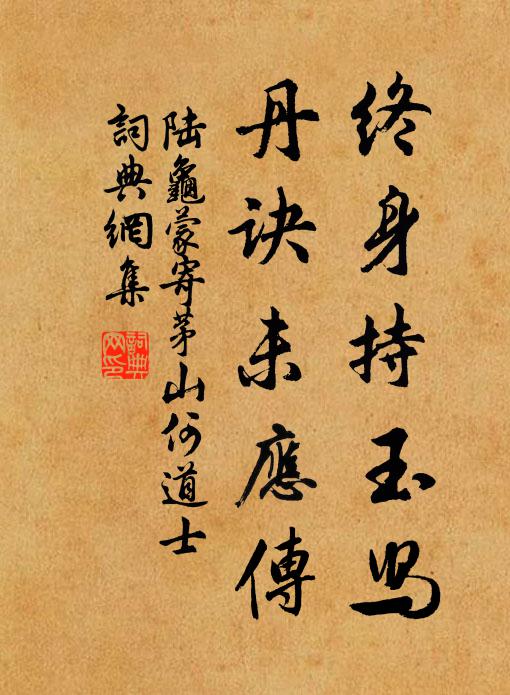 終身持玉舄
丹訣未應傳
陆龜蒙寄茅山何道士
詞典網集
詞典
网印